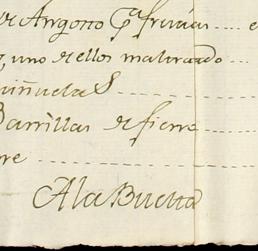 de Angosto pa. frutas .... e
, uno de ellos maltratado ...
uiñuelas
Barrillas de fierro
re
A la Buelta